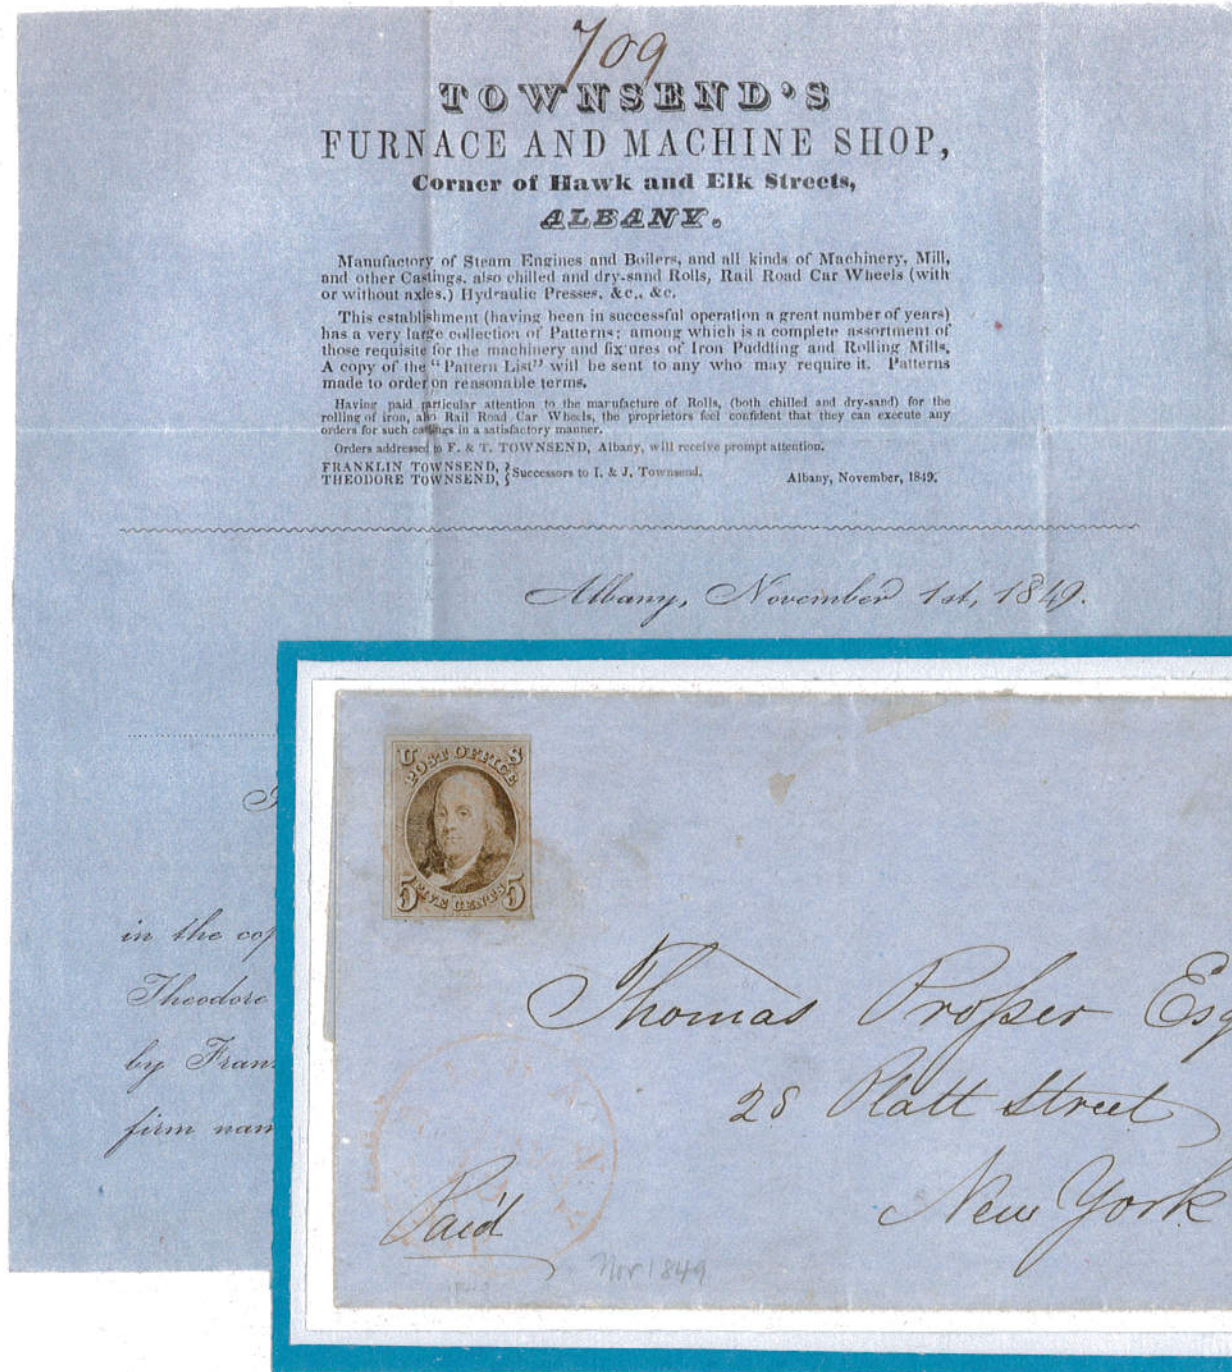 709
TOWNSEND'S
FURNACE AND MACHINE SHOP,
Corner of Hawk and Elk Streets,
ALBANY.
Manufactory of Steam Engines and Boilers, and all kinds of Machinery, Mill,
and other Castings, also chilled and dry-sand Rolls, Rail Road Car Wheels (with
or without axles,) Hydraulic Presses, &c., &c.
This establishment (having been in successful operation a great number of years)
has a very large collection of Patterns; among which is a complete assortment of
those requisite for the machinery and fixtures of Iron Puddling and Rolling Mills.
A copy of the "Pattern List" will be sent to any who may require it. Patterns
made to order on reasonable terms.
Having paid particular attention to the manufacture of Rolls, (both chilled and dry-sand) for the
rolling of iron, also Rail Road Car Wheels, the proprietors feel confident that they can execute any
orders for such castings in a satisfactory manner.
Orders addressed to F. & T. TOWNSEND, Albany, will receive prompt attention.
FRANKLIN TOWNSEND,
THEODORE TOWNSEND, } Successors to I. & J. Townsend. Albany, November, 1849.
Albany, November 1st, 1849.
in the cop
Theodore
by Fran
firm nam
U S
POST OFFICE
5 FIVE CENTS 5
Thomas Prosser Esq
28 Platt Street
New York
Paid
Nov 1849